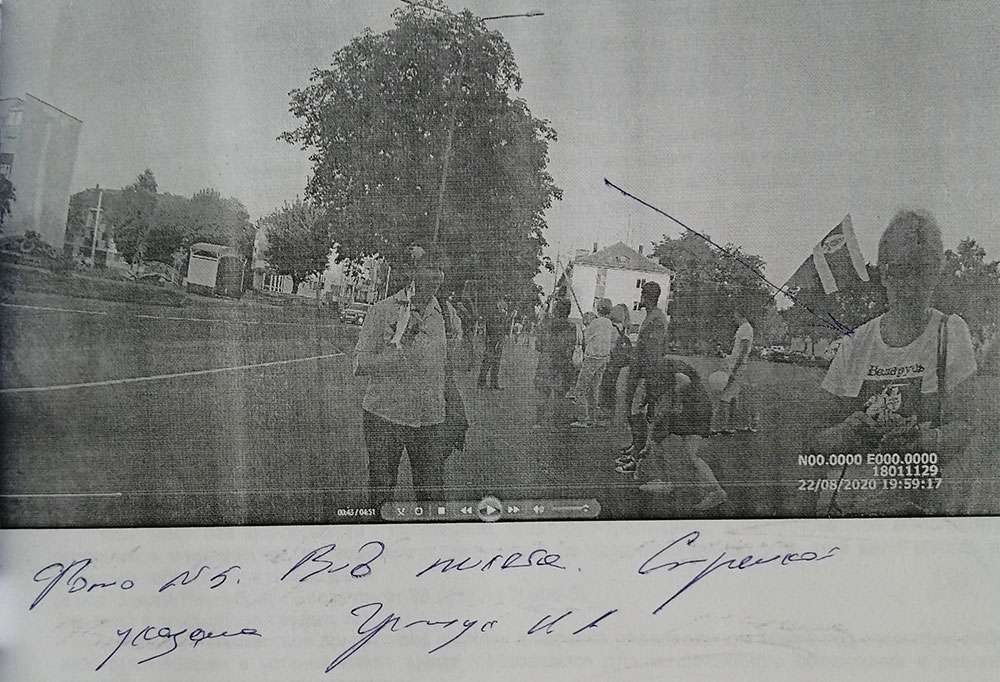 Беларусь
N00.0000 E000.0000
18011129
22/08/2020 19:59:17
00:43 / 04:51
Фото №5. Вид пикета. Стрелкой
указана И.А